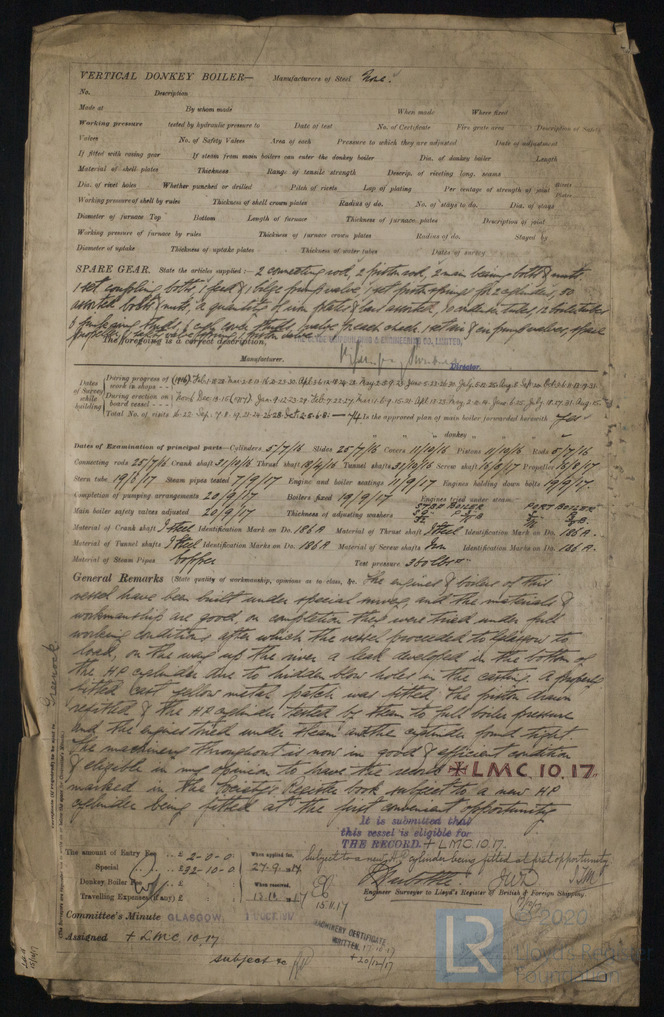 VERTICAL DONKEY BOILER— Manufacturers of Steel None.
No. Description
Made at By whom made When made Where fixed
Working pressure tested by hydraulic pressure to Date of test No. of Certificate Fire grate area Description of Safety
Valves No. of Safety Valves Area of each Pressure to which they are adjusted Date of adjustment
If fitted with easing gear If steam from main boilers can enter the donkey boiler Dia. of donkey boiler Length
Material of shell plates Thickness Range of tensile strength Descrip. of riveting long. seams
Dia. of rivet holes Whether punched or drilled Pitch of rivets Lap of plating Per centage of strength of joint Rivets Plates
Working pressure of shell by rules Thickness of shell crown plates Radius of do. No. of stays to do. Dia. of stays
Diameter of furnace Top Bottom Length of furnace Thickness of furnace plates Description of joint
Working pressure of furnace by rules Thickness of furnace crown plates Radius of do. Stayed by
Diameter of uptake Thickness of uptake plates Thickness of water tubes Dates of survey
SPARE GEAR. State the articles supplied:— 2 connecting rod, 2 piston rod, 2 main bearing bolts & nuts
1 set coupling bolts, 1 feed & 1 bilge pump valve, 1 set piston springs for 2 cylinders, 50
assorted bolts & nuts, a quantity of iron plates & bars assorted, 30 condenser tubes, 12 boiler tubes
The foregoing is a correct description,
Manufacturer. Director.
Dates of Survey while building
During progress of work in shops
During erection on board vessel
Total No. of visits
Is the approved plan of main boiler forwarded herewith Yes
" " " donkey " " "
Dates of Examination of principal parts—Cylinders 5/7/16 Slides 25/7/16 Covers 11/10/16 Pistons 11/10/16 Rods 5/7/16
Connecting rods 25/7/16 Crank shaft 31/10/16 Thrust shaft 18/4/16 Tunnel shafts 31/10/16 Screw shaft 15/6/17 Propeller 15/6/17
Stern tube 19/6/17 Steam pipes tested 7/9/17 Engine and boiler seatings 11/9/17 Engines holding down bolts 19/9/17.
Completion of pumping arrangements 20/9/17 Boilers fixed 19/9/17 Engines tried under steam
Main boiler safety valves adjusted 20/9/17 Thickness of adjusting washers STBD BOILER PORT BOILER
Material of Crank shaft I Steel Identification Mark on Do. 186A Material of Thrust shaft I Steel Identification Mark on Do. 186A.
Material of Tunnel shafts I Steel Identification Marks on Do. 186A Material of Screw shafts Iron Identification Marks on Do. 186A.
Material of Steam Pipes Copper Test pressure 360 lbs
General Remarks (State quality of workmanship, opinions as to class, &c. The engines & boilers of this
vessel have been built under special survey, and the materials &
workmanship are good on completion they were tried under full
working conditions after which the vessel proceeded to Glasgow to
load, on the way up the river a leak developed in the bottom of
the HP cylinder due to hidden blow holes in the casting. A properly
fitted cast yellow metal patch was fitted. The piston drawn
refitted & the HP cylinder tested by steam to full boiler pressure
and the engines tried under steam and the cylinder found tight.
The machinery throughout is now in good & efficient condition
& eligible in my opinion to have the record +LMC.10.17.
marked in the Society's Register book subject to a new HP
cylinder being fitted at the first convenient opportunity
It is submitted that
this vessel is eligible for
THE RECORD. + LMC.10.17.
Subject to a new H.P. cylinder being fitted at first opportunity
The amount of Entry Fee £ 2-0-0
Special £ 32-10-0
Donkey Boiler Fee £
Travelling Expenses (if any) £
When applied for,
27-9-17
When received,
15.11.17
Engineer Surveyor to Lloyd's Register of British & Foreign Shipping.
Committee's Minute GLASGOW
Assigned + LMC.10.17
subject &c
MACHINERY CERTIFICATE
WRITTEN
Greenock
LR
© 2020
Lloyd's Register
Foundation